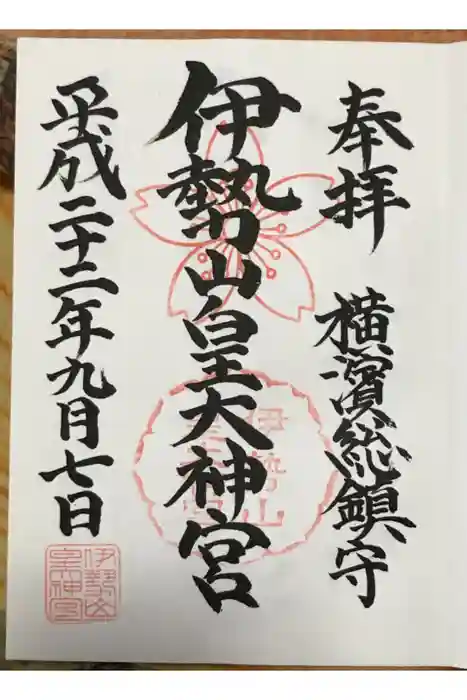 奉拝
横濱総鎮守
伊勢山皇大神宮
平成二十二年九月七日
伊勢山
皇大神宮
伊勢山
皇大神宮